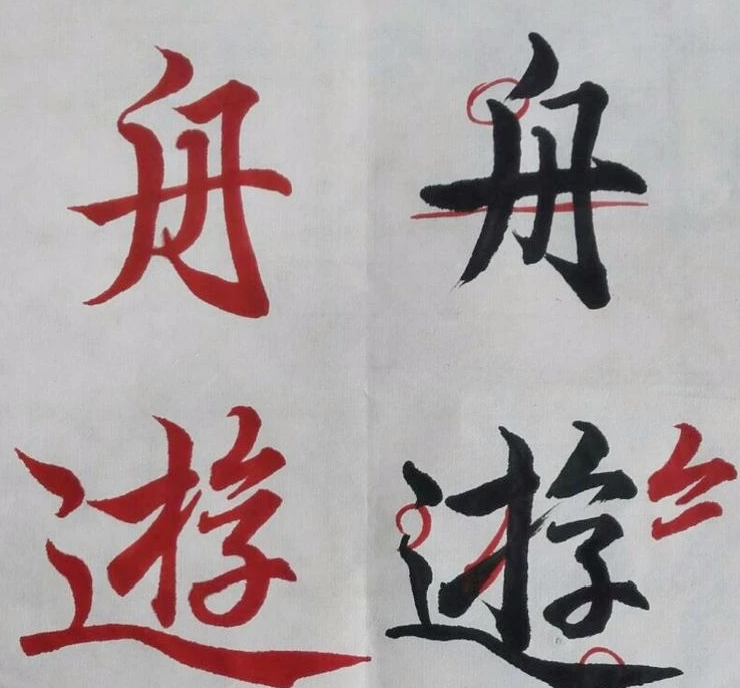 舟 舟
遊 遊